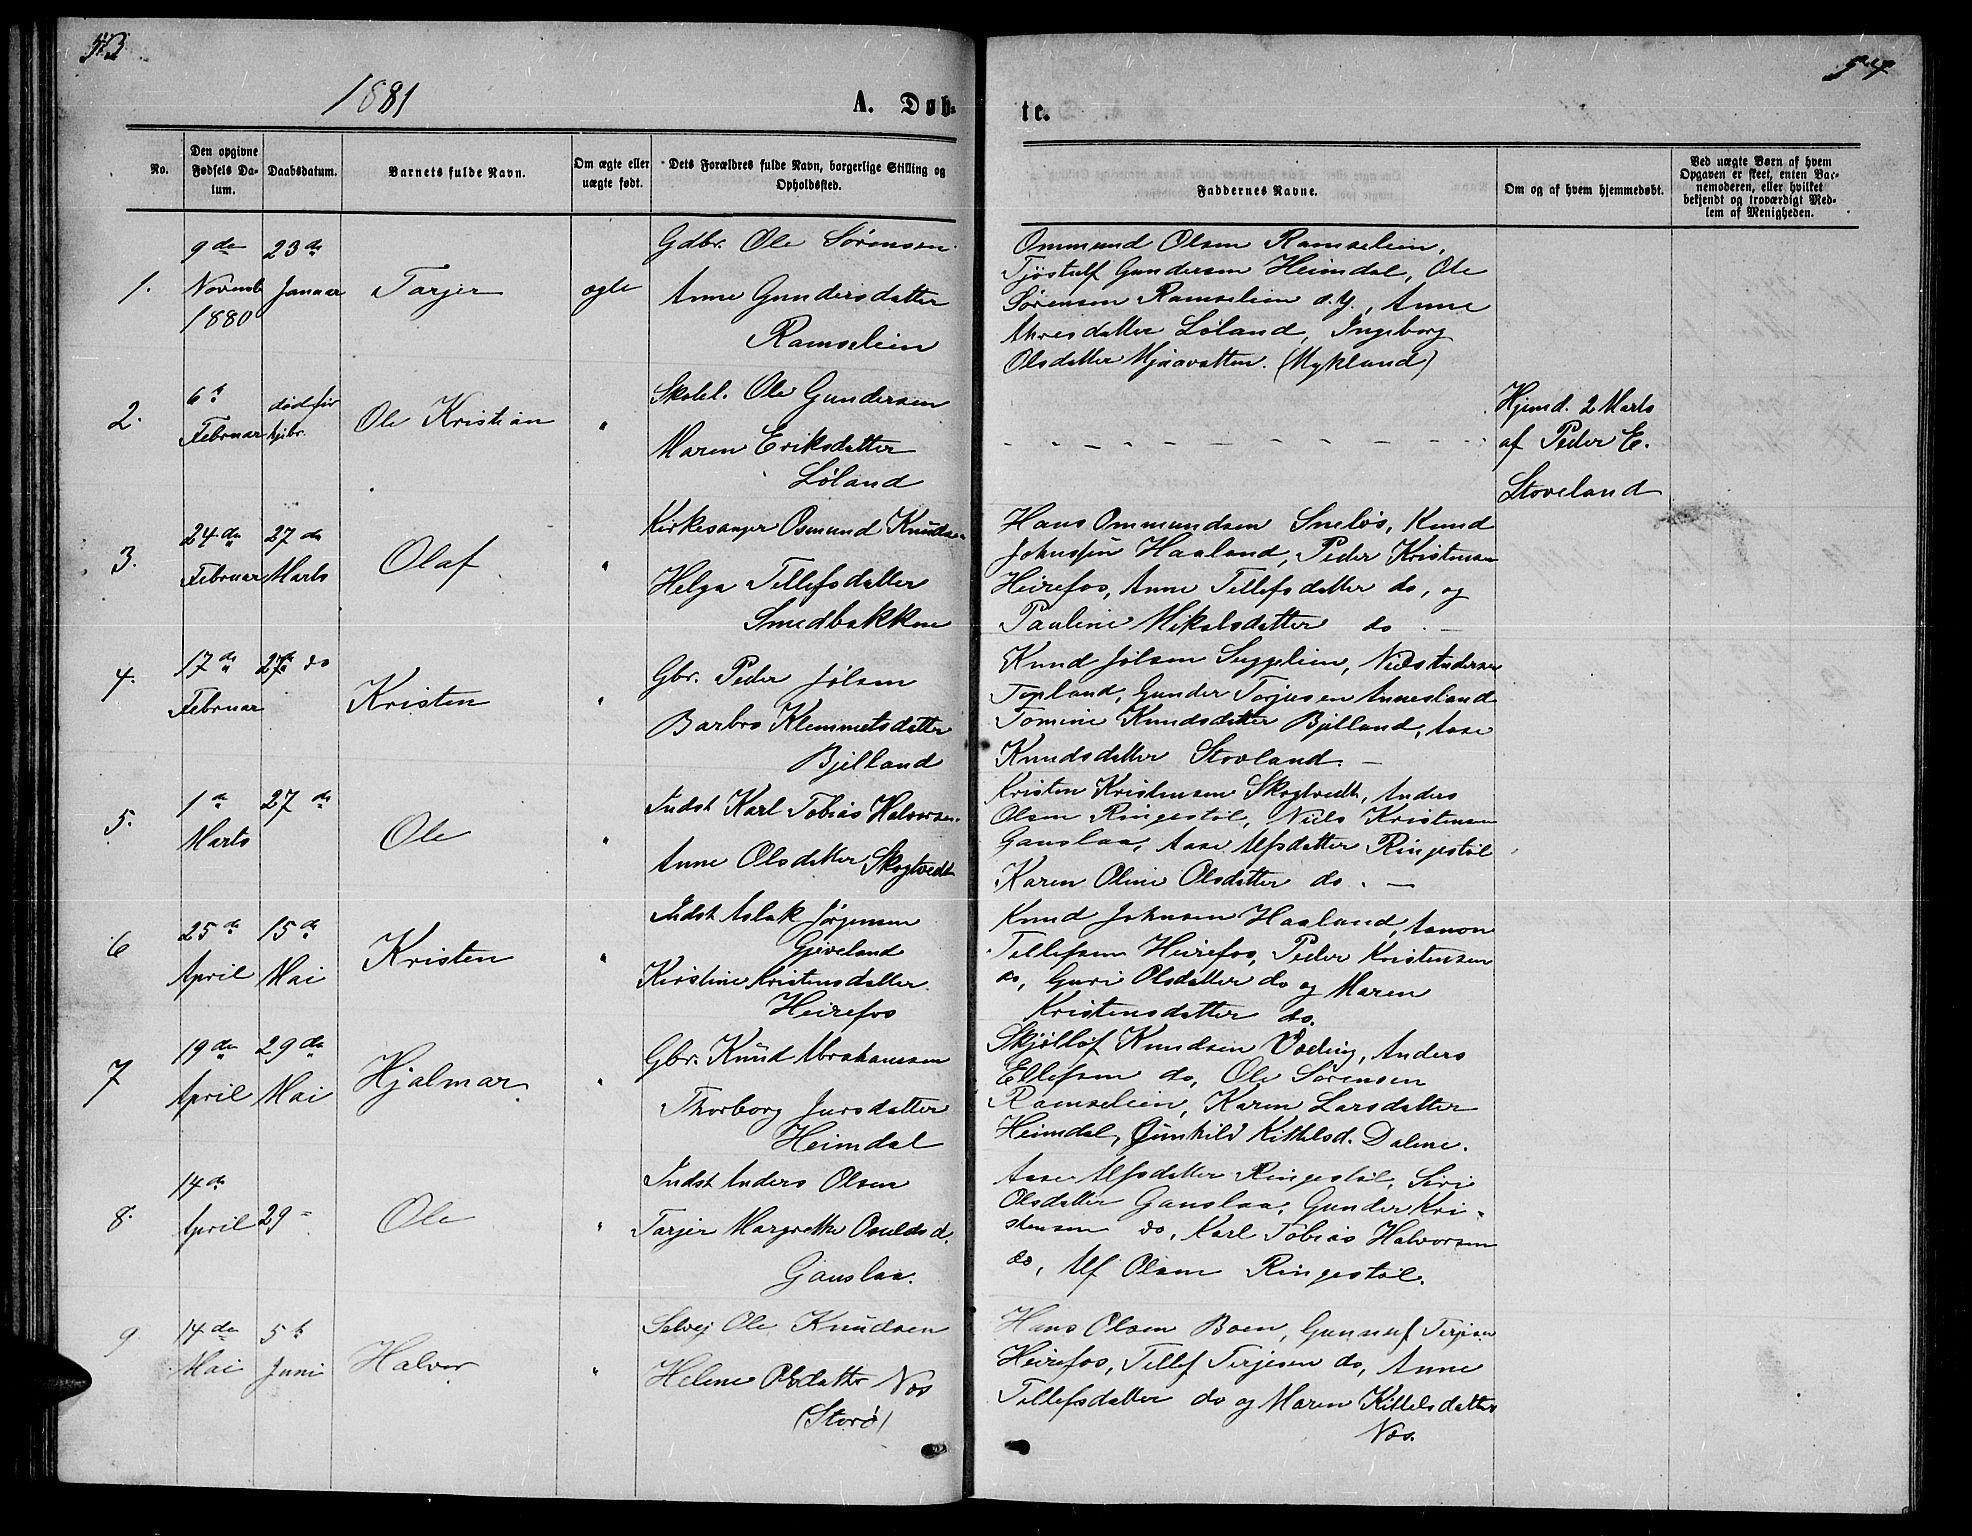 53
54
1881
A. Døb-
te.
No.
Den opgivne Fødsels Da-tum.
Daabsdatum.
Barnets fulde Navn.
Om ægte eller uægte født.
Dets Forældres fulde Navn, borgerlige Stilling og Opholdssted.
Faddernes Navne.
Om og af hvem hjemmedøbt.
Ved uægte Børn af hvem Opgaven er skeet, enten Bar-nemoderen, eller hvilket bekjendt og troværdigt Med-lem af Menigheden.
1.
9de Novemb 1880
23de Januar
Tarjer
ægte
Gdbr. Ole Sørensen
Anne Gundersdatter
Ramselien
Ommund Olsen Ramselien,
Tjøstulf Gundersen Heimdal, Ole
Sørensen Ramselien d.y., Anne
datter Løland, Ingeborg
Olsdatter Mjaavatten. (Mykland)
2.
6te Februar
død før kjbr.
Ole Kristian
"
Skolel. Ole Gundersen
Maren Eriksdatter
Løland
Hjemd. 2 Marts
af Peder E.
Stoveland
3.
24de Februar
27de Marts
Olaf
"
Kirkesanger Osmund Knudsen
Helga Tellefsdatter
Smedbakken
Hans Ommundsen Sneløs, Knud
Johnsen Haaland, Peder Kristensen
Heirefos, Anne Tellefsdatter do, og
Pauline Mikalsdatter do -
4.
17de Februar
27de do
Kristen
"
Gbr. Peder Jølsen
Barbro Klemmetsdatter
Bjelland
Knud Jølsen Suggelien, Niels Andersen
Topland, Gunder Torjusen Annesland
Tomine Knudsdatter Bjelland, Aase
Knudsdatter Stovland. -
5.
1de Marts
27de
Ole
"
Indst Karl Tobias Halvorsen.
Anne Olsdatter Skogtvedt
Kristen Kristensen Skogtvedt, Anders
Olsen Ringestøl, Niels Kristensen
Gauslaa, Aase Alfsdatter Ringestøl
Karen Oline Olsdatter do. -
6
25de April
15de Mai
Kristen
"
Indst Aslak Jørgensen
Gjeveland
Kirstine Kristensdatter
Heirefos
Knud Johnsen Haaland, Aanon
Tellefsen Heirefos, Peder Kristensen
do, Guri Olsdatter do og Maren
Kristensdatter do.
7
19de April
29de Mai
Hjalmar
"
Gbr. Knud Abrahamsen
Thorborg Jursdatter
Heimdal
Skjøllof Knudsen Væting, Anders
Ellefsen do, Ole Sørensen
Ramselien, Karen Larsdatter
Heimdal, Gunhild Kittelsd. Dalene.
8.
14de April
29 -
Ole
"
Indst Anders Olsen
Tarjer Margrethe Osuldsd.
Gauslaa.
Aase Alfsdatter Ringestøl, Siri
Olsdatter Gauslaa, Gunder Kri-
stensen do, Karl Tobias Halvorsen
do, Alf Olsen Ringestøl.
9.
14de Mai
5te Juni
Halvor
"
Selvej Ole Knudsen
Helene Olsdatter Næs
(Storø)
Hans Olsen Boen, Gunnuf Terjesen
Heirefos, Tellef Terjesen do, Anne
Tellefsdatter do og Maren Kittelsdatter
Næs.